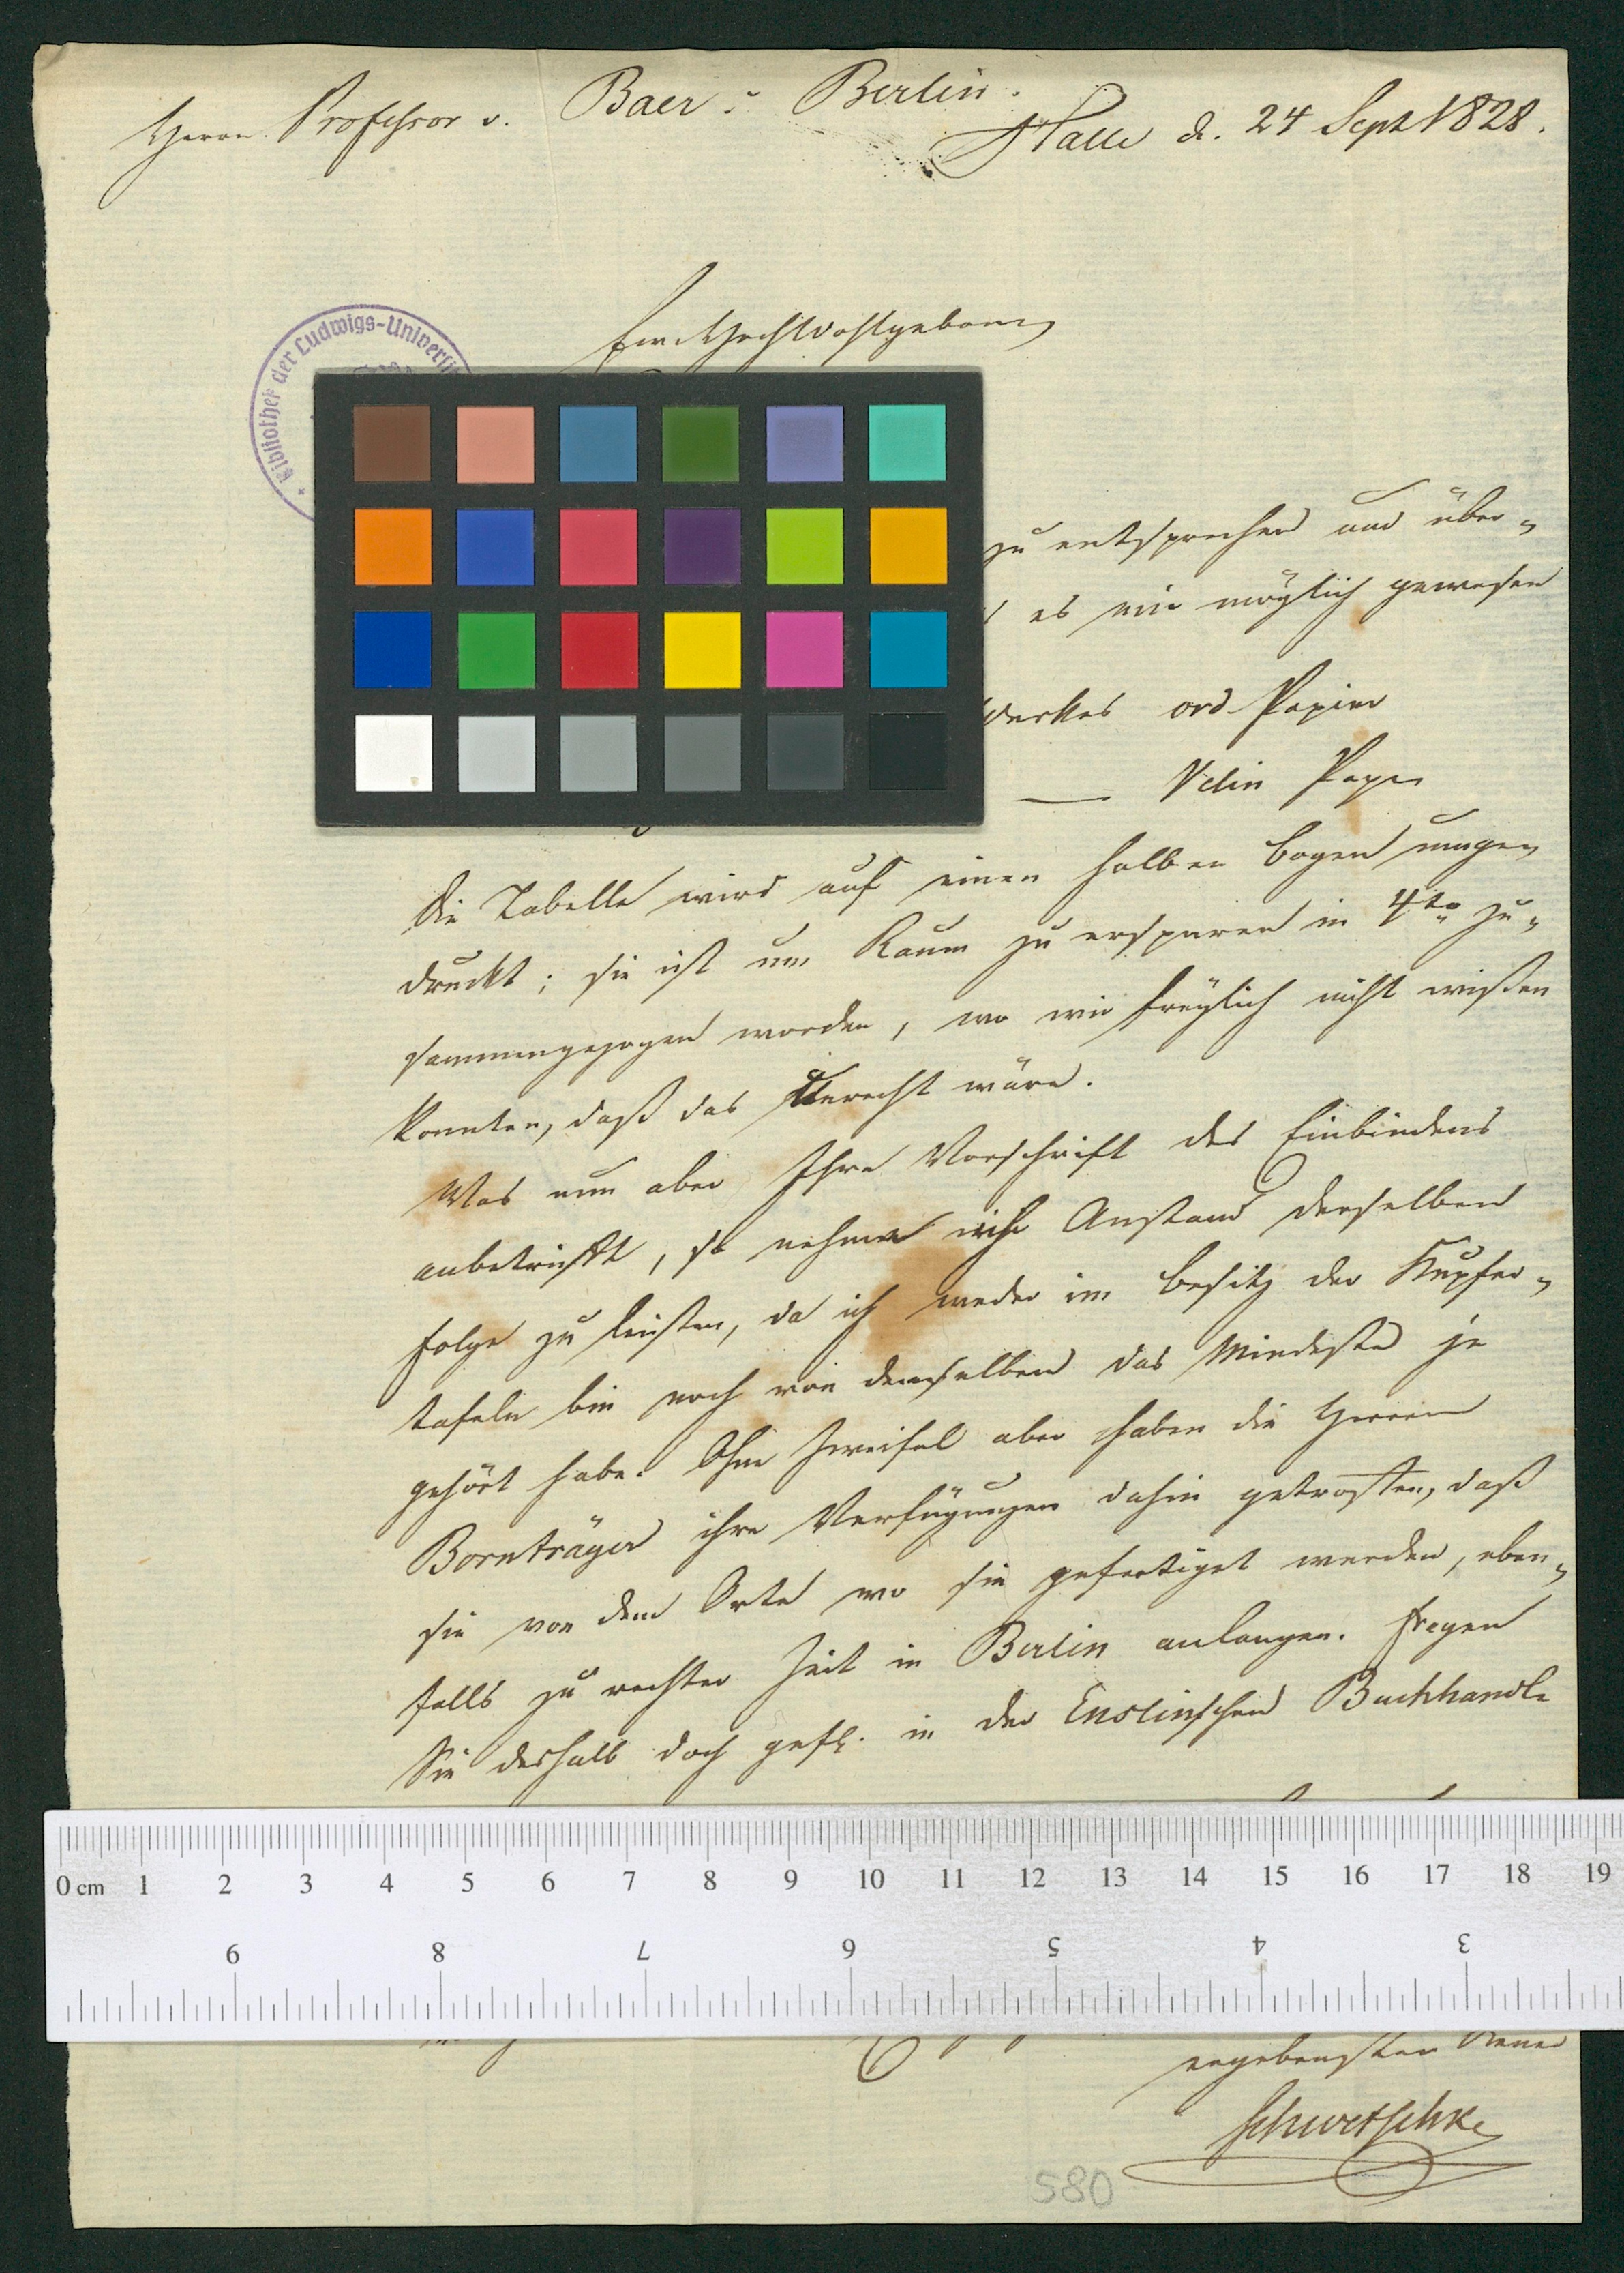 Herrn Professor v. Baer : Berlin.
Halle d. 24 Sept 1828.
Ew. Hochwohlgeboren
Bibliothek der Ludwigs-Universi
zu entsprechen und über-
es mir möglich gewesen
ord Papier
— Velin Papier
Die Tabelle wird auf einen halben Bogen umge-
druckt; sie ist um Raum zu ersparen in 4to zu-
sammengezogen worden, wo wir freylich nicht wißen
konnten, daß das Unrecht wäre.
Was nun aber Ihre Vorschrift des Einbindens
anbetrifft, so nehme ich Anstand derselben
Folge zu leisten, da ich weder im Besitz der Kupfer-
tafeln bin noch von denselben das Mindeste je
gehört habe. Ohne Zweifel aber haben die Herren
Bornträger ihre Verfügungen dahin getroffen, daß
sie von dem Orte wo sie gefertiget werden, eben-
falls zu rechter Zeit in Berlin anlangen. Fragen
Sie deshalb doch gefl. in der Enslinschen Buchhandl.
0 cm 1 2 3 4 5 6 7 8 9 10 11 12 13 14 15 16 17 18 19
9 8 7 6 5 4 3
ergebenster Diener
Schwetschke
580